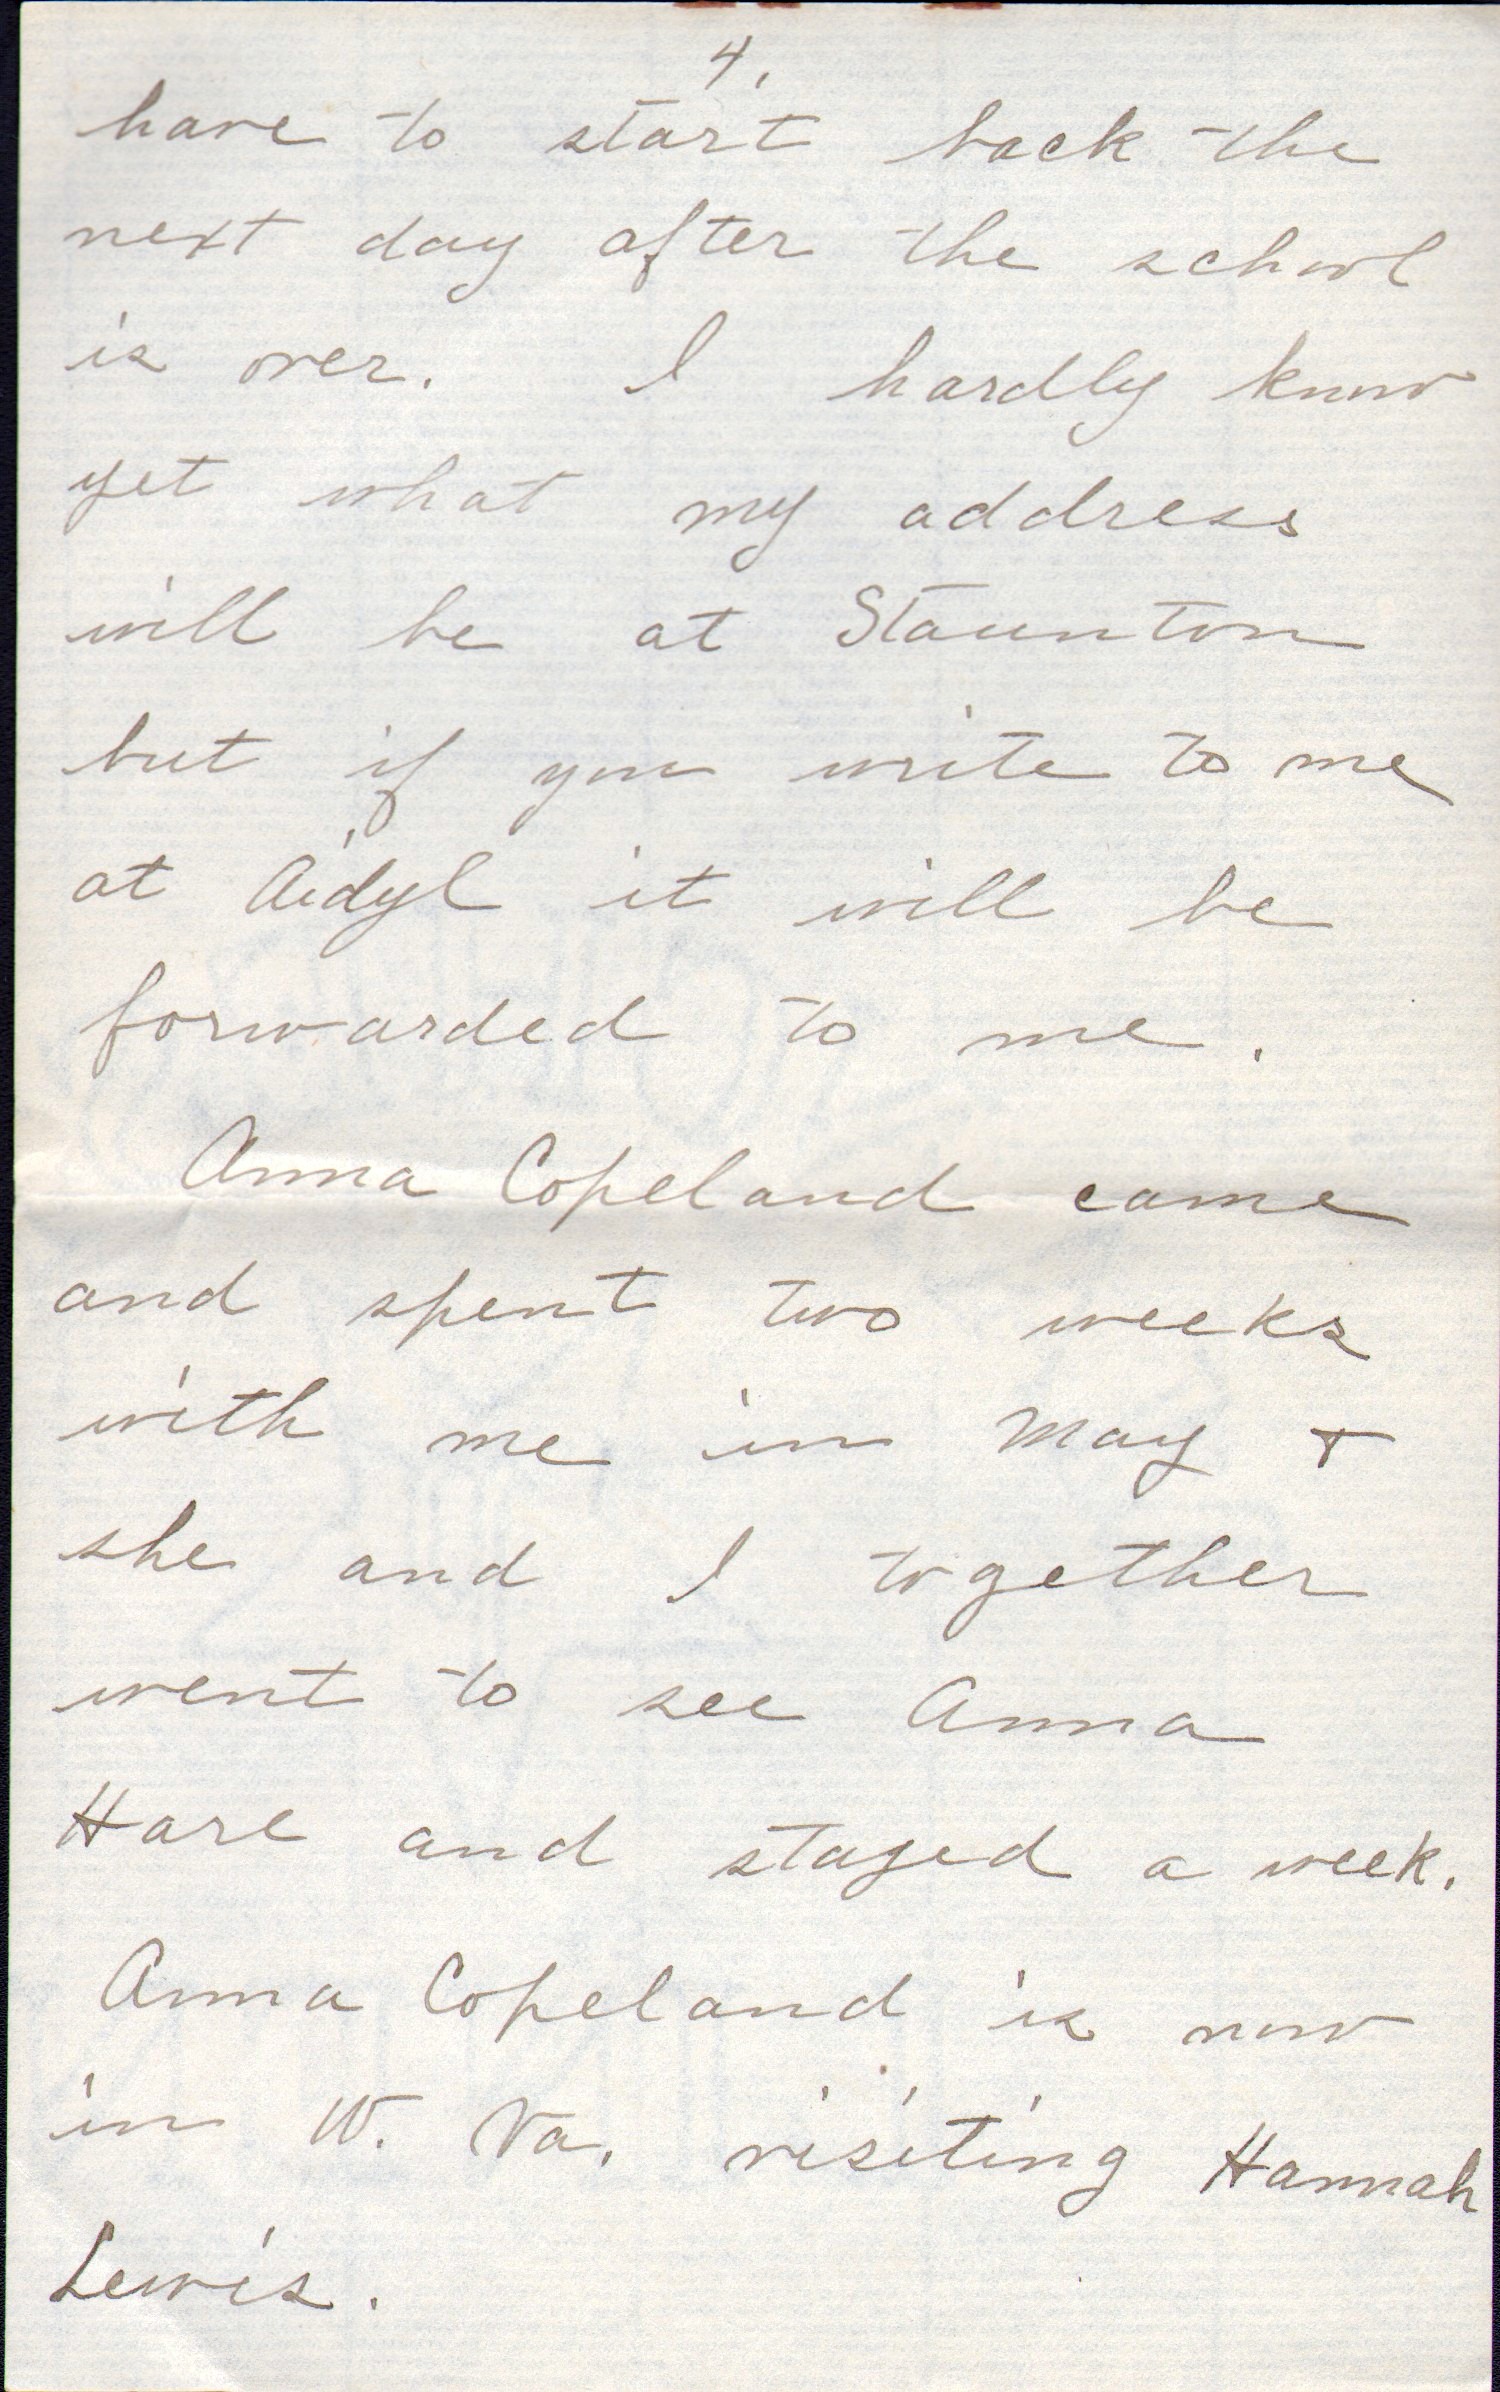 4.
have to start back the
next day after the school
is over. I hardly know
yet what my address
will be at Staunton
but if you write to me
at Aidyl it will be
forwarded to me.
Anna Copeland came
and spent two weeks
with me in May +
she and I together
went to see Anna
Hare and stayed a week.
Anna Copeland is now
in W. Va. visiting Hannah
Lewis.